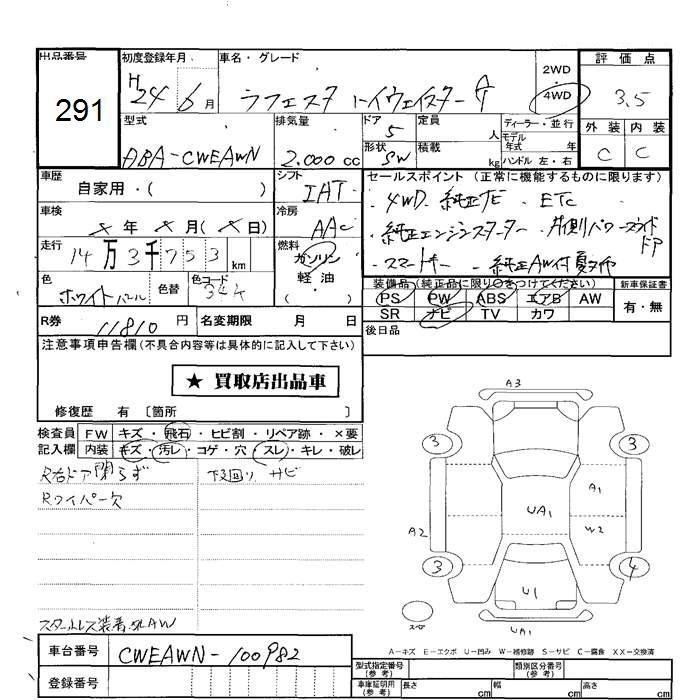 出品番号 初度登録年月 車名・グレード 評価点
291 H24 6月 ラフェスタ ハイウェイスター 2WD 4WD 3.5
型式 排気量 ドア 5 定員 人 ディーラー・並行 外装 内装
ABA-CWEAWN 2.000cc 形状 SW 積載 kg モデル年式 年 ハンドル 左・右 C C
車歴 自家用・( ) シフト IAT セールスポイント(正常に機能するものに限ります)
車検 年 月( 日) 冷房 AAC ・4WD ・純正 ・ETC
・純正エンジンスターター ・片側パワースライドドア
走行 14万3千753km 燃料 ガソリン 軽油 ( ) ・スマートキー ・純正AW付
色 ホワイトパール 色替 色コード 34K 装備品(純正品に限り○をつけてください) 新車保証書
PS PW ABS エアB AW 有・無
R券 11810円 名変期限 月 日 SR ナビ TV カワ
注意事項申告欄(不具合内容等は具体的に記入して下さい) 後日品
★ 買取店出品車
修復歴 有 〔箇所 〕
A3
検査員 FW キズ・飛石・ヒビ割・リペア跡・×要
記入欄 内装 キズ・汚レ・コゲ・穴・スレ・キレ・破レ
3 3
R右ドア閉らず 下廻り サビ
Rワイパー欠
A1
A2 UA1 W2
3 4
U1
スペア
スタッドレス装着 AW
UA1
A－キズ E－エクボ U－凹み W－補修跡 S－サビ C－腐食 XX－交換済
車台番号 CWEAWN-100982
型式指定番号(参考) 類別区分番号(参考)
登録番号 車庫証明用(参考) 長さ cm 幅 cm 高さ cm